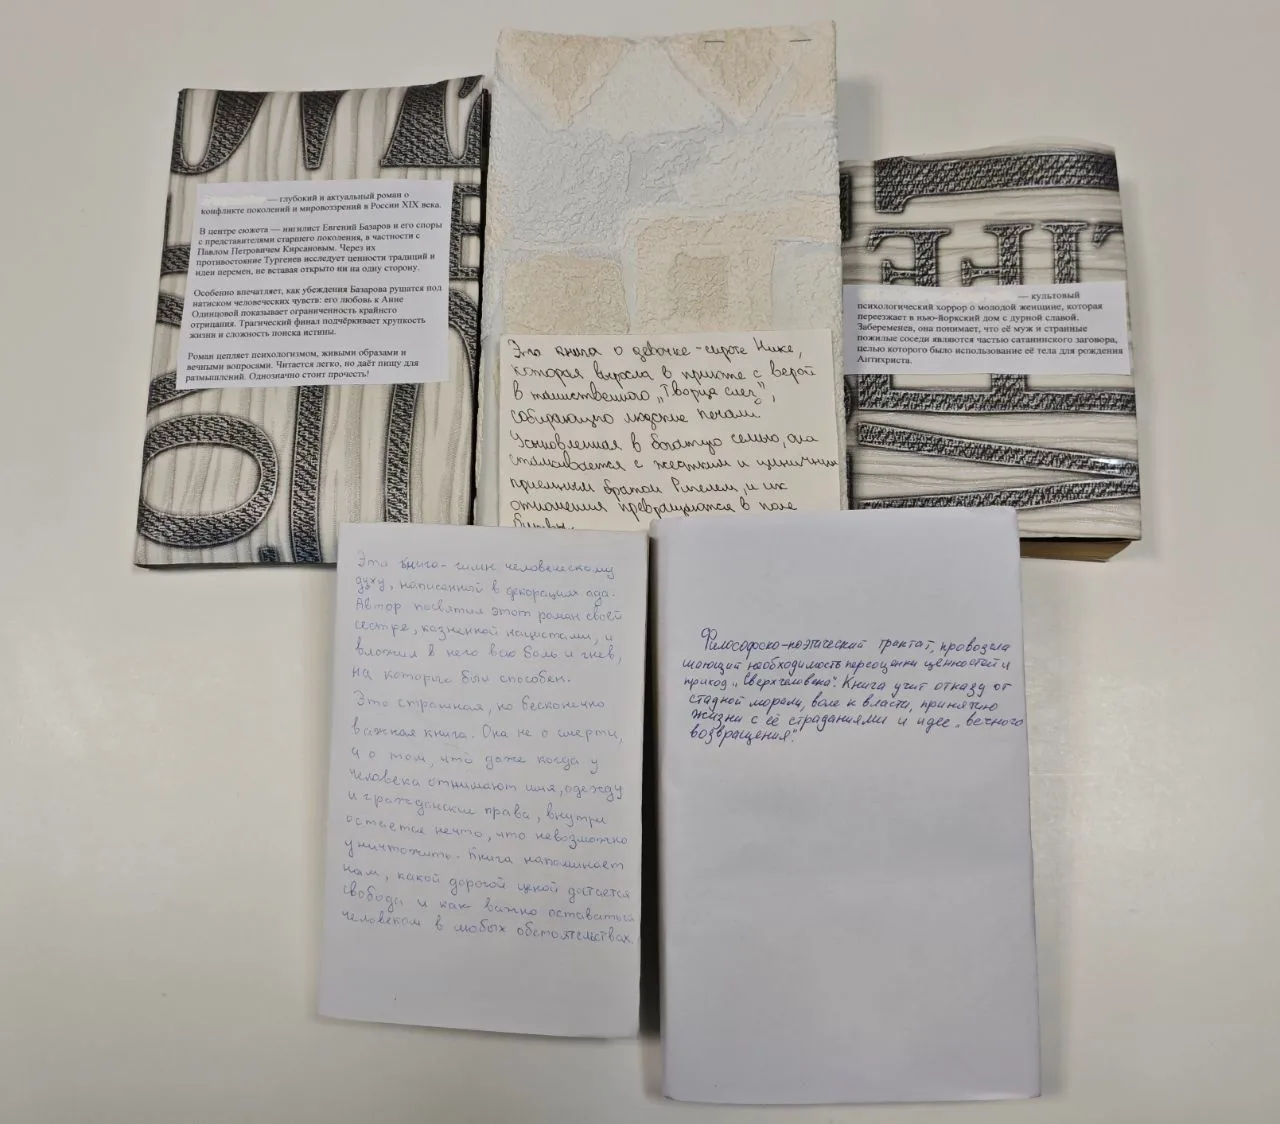 — глубокий и актуальный роман о
конфликте поколений и мировоззрений в России XIX века.
В центре сюжета — нигилист Евгений Базаров и его споры
с представителями старшего поколения, в частности с
Павлом Петровичем Кирсановым. Через их
противостояние Тургенев исследует ценности традиций и
идеи перемен, не вставая открыто ни на одну сторону.
Особенно впечатляет, как убеждения Базарова рушатся под
натиском человеческих чувств: его любовь к Анне
Одинцовой показывает ограниченность крайнего
отрицания. Трагический финал подчёркивает хрупкость
жизни и сложность поиска истины.
Роман цепляет психологизмом, живыми образами и
вечными вопросами. Читается легко, но даёт пищу для
размышлений. Однозначно стоит прочесть!
Эта книга о девочке-сироте Нике,
которая выросла в приюте с верой
в таинственного „Творца слез",
собирающего людские печали
Усыновленная в богатую семью, она
сталкивается с жестким и циничным
приемным братом Ригелем, и их
отношения превращаются в поле
битвы.
— культовый
психологический хоррор о молодой женщине, которая
переезжает в нью-йоркский дом с дурной славой.
Забеременев, она понимает, что её муж и странные
пожилые соседи являются частью сатанинского заговора,
целью которого было использование её тела для рождения
Антихриста.
Эта книга-гимн человеческому
духу, написанной в декорациях ада.
Автор посвятил этот роман своей
сестре, казненной нацистами, и
вложил в него всю боль и гнев,
на которые был способен.
Это страшная, но бесконечно
важная книга. Она не о смерти,
а о том, что даже когда у
человека отнимают имя, одежду
и гражданские права, внутри
остается нечто, что невозможно
уничтожить. Книга напоминает
нам, какой дорогой ценой дается
свобода и как важно оставаться
человеком в любых обстоятельствах.
Философско-поэтический трактат, провозгла
шающий необходимость переоценки ценностей и
приход „Сверхчеловека". Книга учит отказу от
стадной морали, воле к власти, принятию
жизни с её страданиями и идее „вечного
возвращения".